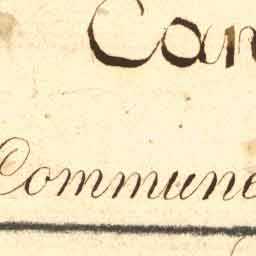 Can
Commune